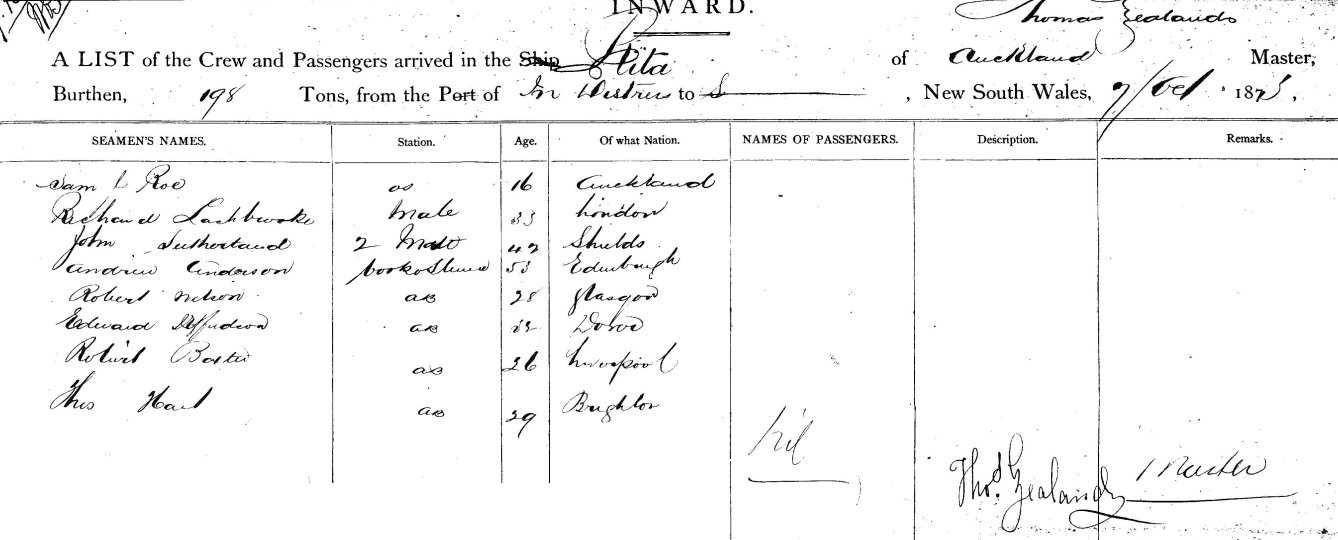 INWARD.
Thomas Zealands
A LIST of the Crew and Passengers arrived in the Ship Rita of Auckland Master,
Burthen, 198 Tons, from the Port of In Distress to S , New South Wales, 7/Oct 1875,
SEAMEN'S NAMES. Station. Age. Of what Nation. NAMES OF PASSENGERS. Description. Remarks.
Sam L Roe os 16 Auckland
Richard Lashbrooke Mate 33 London
John Sutherland 2 Mate 42 Shields
Andrew Anderson 53 Edinburgh
Robert Nelson AB 28 Glasgow
Edward AB Dover
Robert Baxter AB 26 Liverpool
Thos Hart AB 29 Brighton
Nil
Thos. Zealand Master